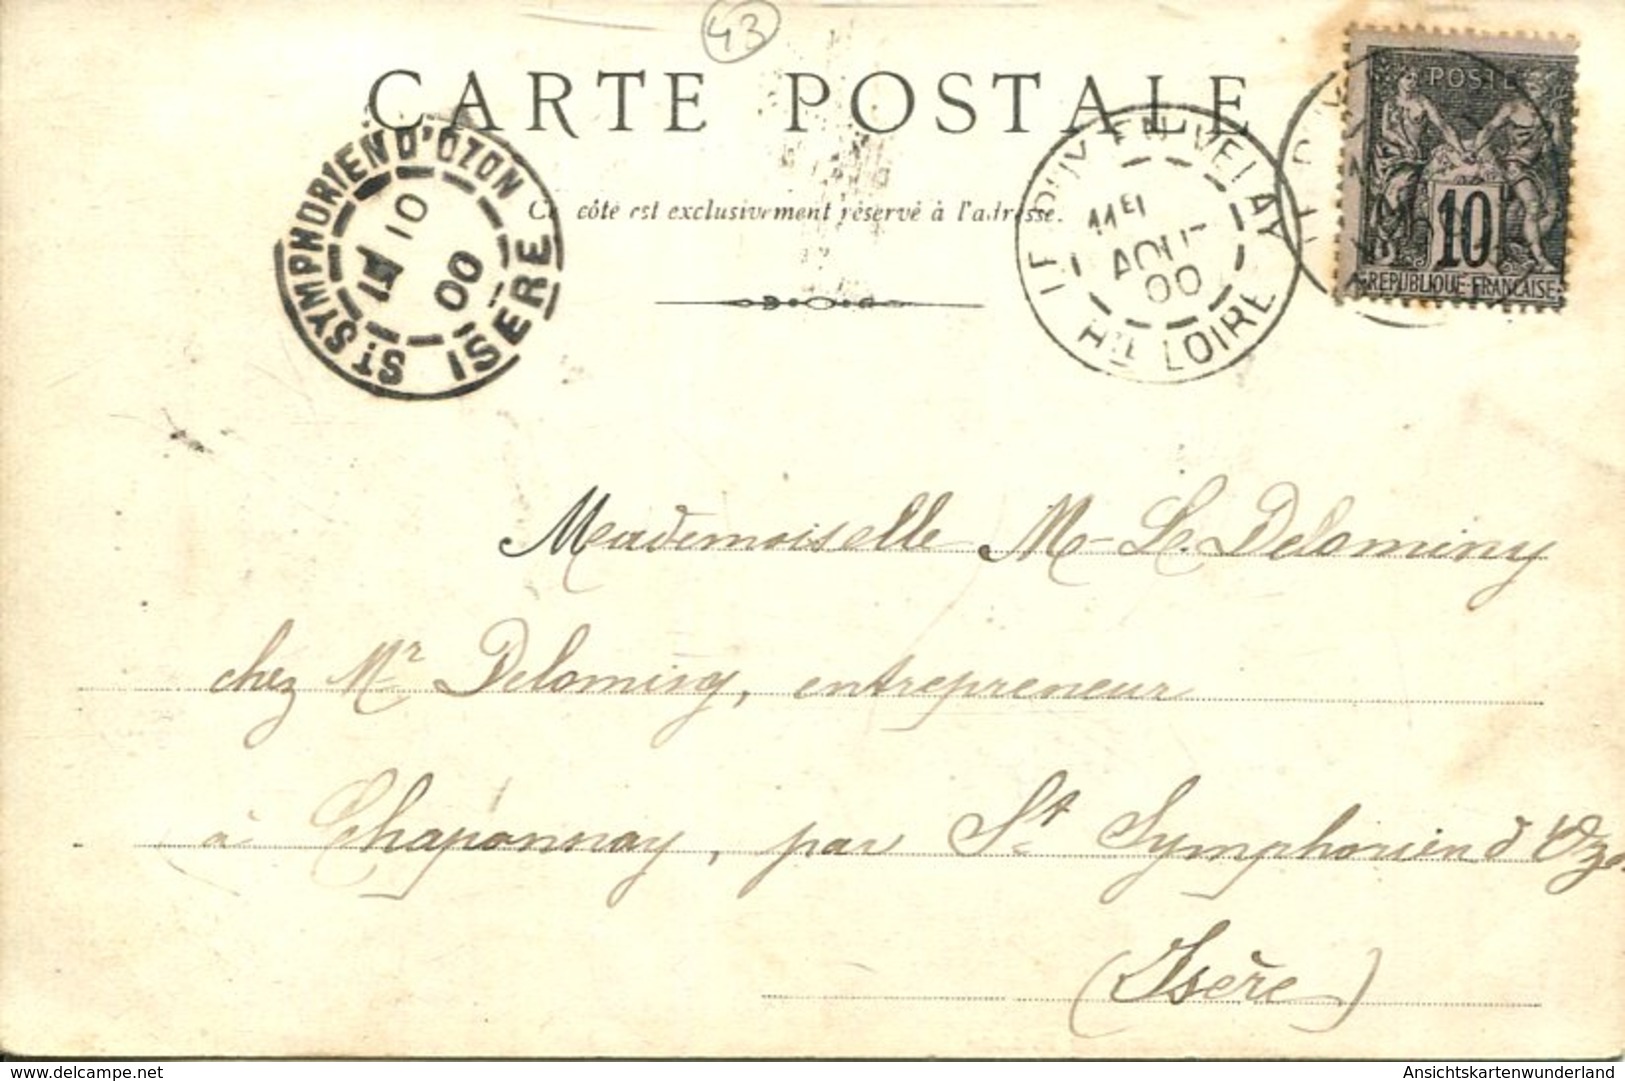 43
CARTE POSTALE
Ce côté est exclusivement réservé à l'adresse.
ST SYMPHORIEN D'OZON
10
00
ISERE
LE PUY-EN-VELAY
AOUT
00
Hte LOIRE
POSTE
10
REPUBLIQUE FRANÇAISE
Mademoiselle M. L. Delominy
chez Mr Delominy, entrepreneur
à Chaponnay, par St Symphorien d'Ozon
(Isère)
AnsichtskartenWunderland
delcampe.net